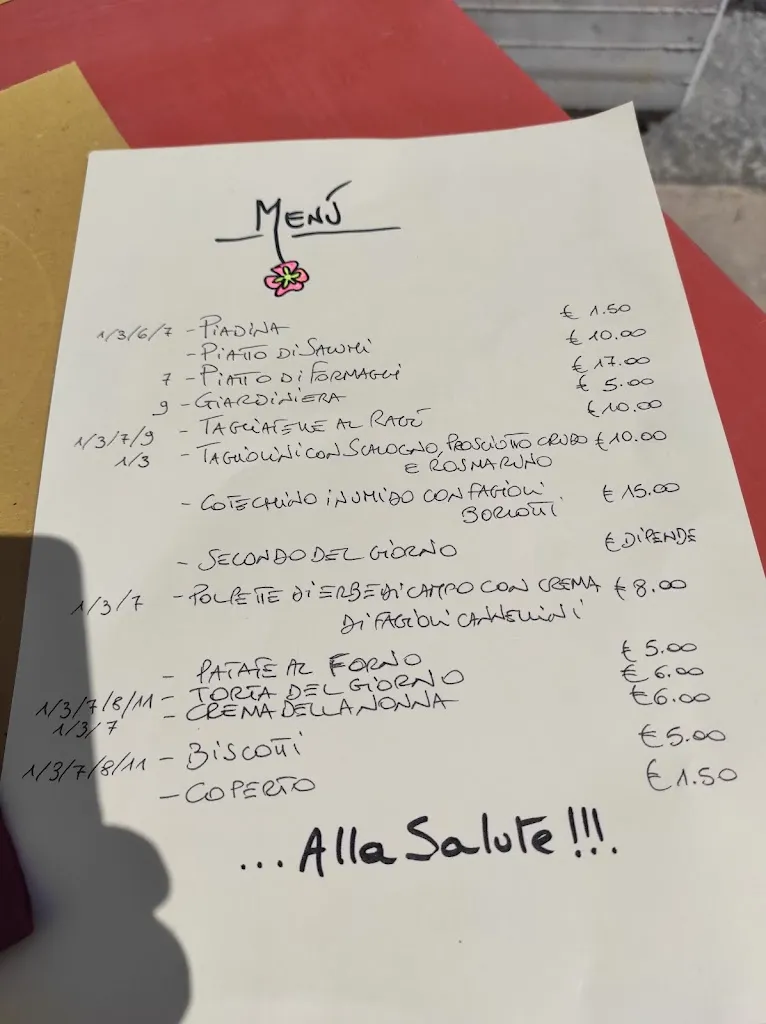 MENÚ
1/3/6/7 - PIADINA € 1.50
- PIATTO DI SALUMI € 10.00
7 - PIATTO DI FORMAGGI € 17.00
9 - GIARDINIERA € 5.00
1/3/7/9 - TAGLIATELLE AL RAGÚ € 10.00
1/3 - TAGLIOLINI CON SCALOGNO, PROSCIUTTO CRUDO € 10.00
E ROSMARINO
- COTECHINO IN UMIDO CON FAGIOLI € 15.00
BORLOTTI
- SECONDO DEL GIORNO € DIPENDE
1/3/7 - POLPETTE DI ERBE DI CAMPO CON CREMA € 8.00
DI FAGIOLI CANNELLINI
- PATATE AL FORNO € 5.00
1/3/7/8/11 - TORTA DEL GIORNO € 6.00
1/3/7 - CREMA DELLA NONNA € 6.00
1/3/7/8/11 - BISCOTTI € 5.00
- COPERTO € 1.50
... Alla Salute!!!